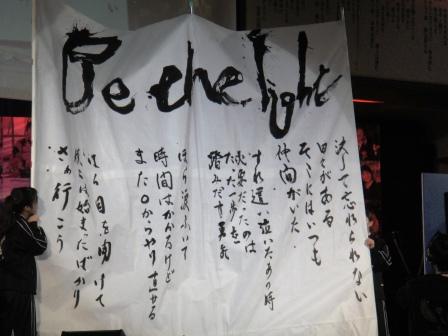 Be the light
決して忘れられない
日々がある
そこにはいつも
仲間がいた
すれ違い泣いたあの時
必要だったのは
ただ一歩を
踏みだす勇気
ほら涙ふいて
時間はかかるけど
また0からやり直せる
ほら目を開けて
僕らは始まったばかり
さあ行こう